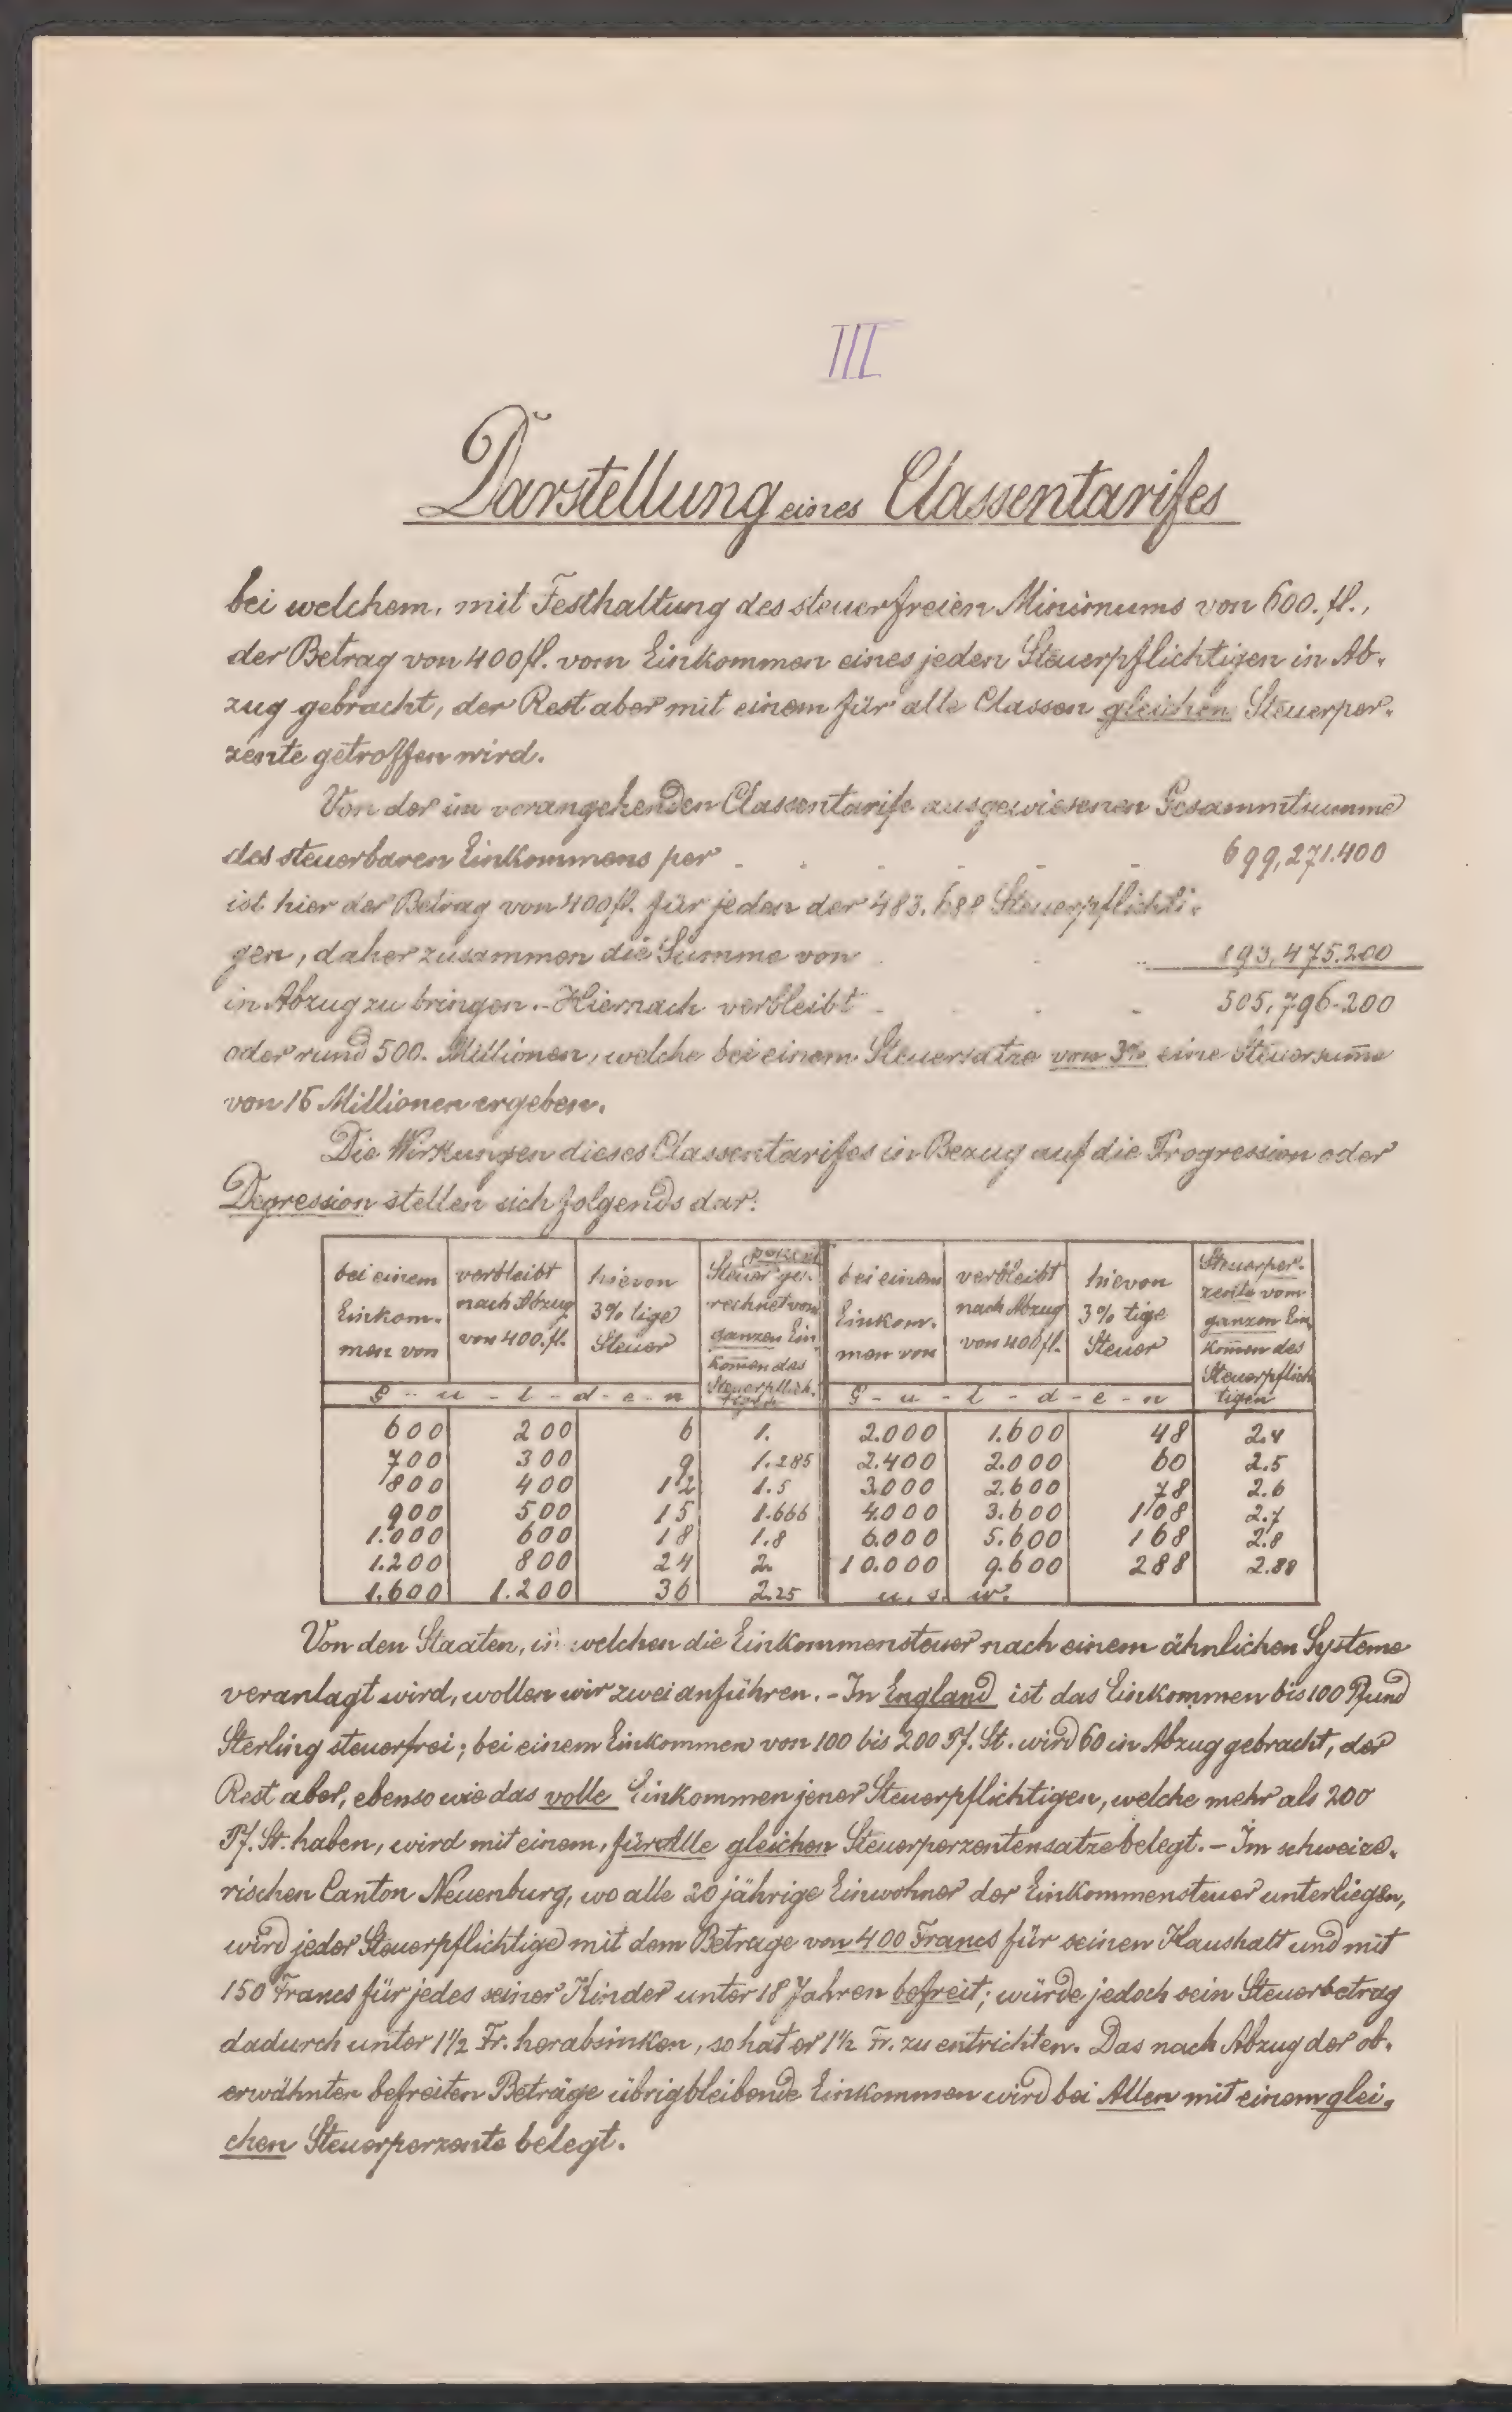 III
Darstellung eines Classentarifes
bei welchem, mit Festhaltung des steuerfreien Minimums von 600. fl.,
der Betrag von 400 fl. vom Einkommen eines jeden Steuerpflichtigen in Ab-
zug gebracht, der Rest aber mit einem für alle Classen gleichen Steuerper-
zente getroffen wird.
Von der im vorangehenden Classentarife ausgewiesenen Gesammtsumme
des steuerbaren Einkommens per - - - - - 699,271.400
ist hier der Betrag von 400 fl. für jeden der 483.688 Steuerpflichti-
gen, daher zusammen die Summe von - - - 193,475.200
in Abzug zu bringen. - Hiernach verbleibt - - - - 505,796.200
oder rund 500. Millionen, welche bei einem Steuersatze von 3% eine Steuersum̅e
von 15 Millionen ergeben.
Die Wirkungen dieses Classentarifes in Bezug auf die Progression oder
Degression stellen sich folgends dar:
bei einem Einkom- men von | verbleibt nach Abzug von 400. fl. | hievon 3% tige Steuer | Steuer perzent ge- rechnet vom ganzen Ein kom̅en des Steuerpflich- tigen | bei einem Einkom- men von | verbleibt nach Abzug von 400 fl. | hievon 3% tige Steuer | Steuerper- zente vom ganzen Ein- kom̅en des Steuerpflich tigen
G - u - l - d - e - n | G - u - l - d - e - n
600 200 6 1. 2.000 1.600 48 2.4
700 300 9 1.285 2.400 2.000 60 2.5
800 400 12 1.5 3.000 2.600 78 2.6
900 500 15 1.666 4.000 3.600 108 2.7
1.000 600 18 1.8 6.000 5.600 168 2.8
1.200 800 24 2. 10.000 9.600 288 2.88
1.600 1.200 36 2.25 u. s. w.
Von den Staaten, in welchen die Einkommensteuer nach einem ähnlichen Systeme
veranlagt wird, wollen wir zwei anführen. - In England ist das Einkommen bis 100 Pfund
Sterling steuerfrei; bei einem Einkommen von 100 bis 200 Pf. St. wird 60 in Abzug gebracht, der
Rest aber, ebenso wie das volle Einkommen jener Steuerpflichtigen, welche mehr als 200
Pf. St. haben, wird mit einem, für Alle gleichen Steuerperzentensatze belegt. - Im schweize-
rischen Canton Neuenburg, wo alle 20 jährige Einwohner der Einkommensteuer unterliegen,
wird jeder Steuerpflichtige mit dem Betrage von 400 Francs für seinen Haushalt und mit
150 Francs für jedes seiner Kinder unter 18 Jahren befreit; würde jedoch sein Steuerbetrag
dadurch unter 1½ Fr. herabsinken, so hat er 1½ Fr. zu entrichten. Das nach Abzug der ob-
erwähnten befreiten Beträge übrigbleibende Einkommen wird bei Allen mit einem glei-
chen Steuerperzente belegt.